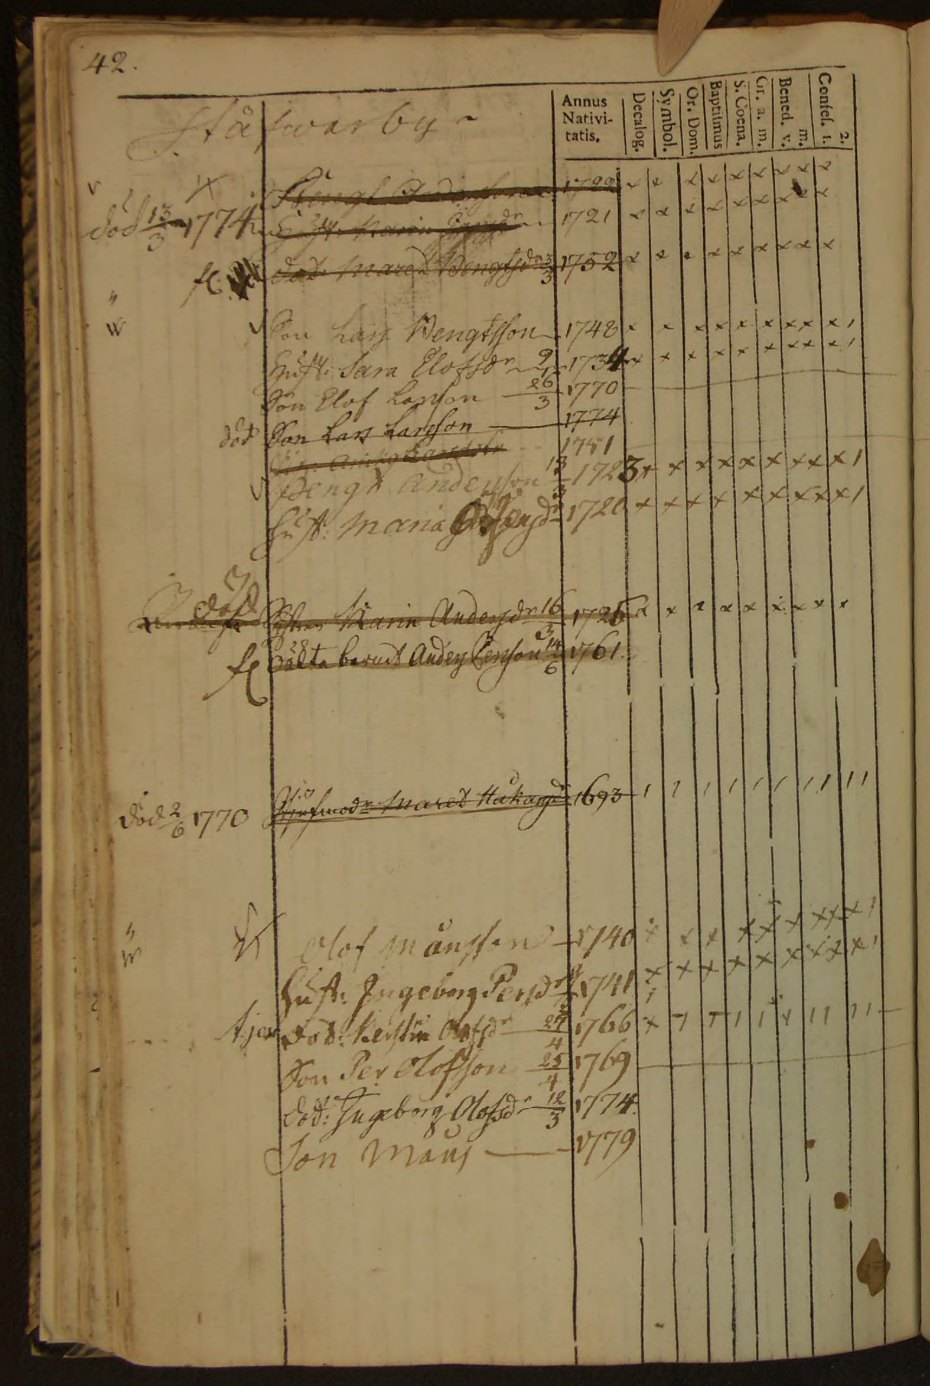 42.
Annus Nativi-tatis.
Decalog.
Symbol.
Or. Dom.
Baptismus
S. Coena.
Gr. a. m.
Bened. v. m.
Confes. 1. 2.
Ståfwarby
Bengt 1722
död 13/3 1774 Hust: Karin 1721
fl. dod: Maret Bengtsdr 3/3 1752
Son Lars Bengtsson 1748
Hust: Sara Elofsdr 9 1734
Son Elof Larsson 26/3 1770
död Son Lars Larsson 1774
1751
Bengt Andersson 13 1723
Hust: Maria 1720
död Karin Andersdr 16 1726
fl barnet Anders Persson 14/6 1761
död 2/6 1770 Maret Håkansdr 1693
Olof Månsson 1740
Hust: Ingeborg Persdr 1741
tjen dod: Kerstin Olofsdr 24/4 1766
Son Per Olofsson 25/4 1769
dod: Ingeborg Olofsdr 12/3 1774.
Son Måns 1779